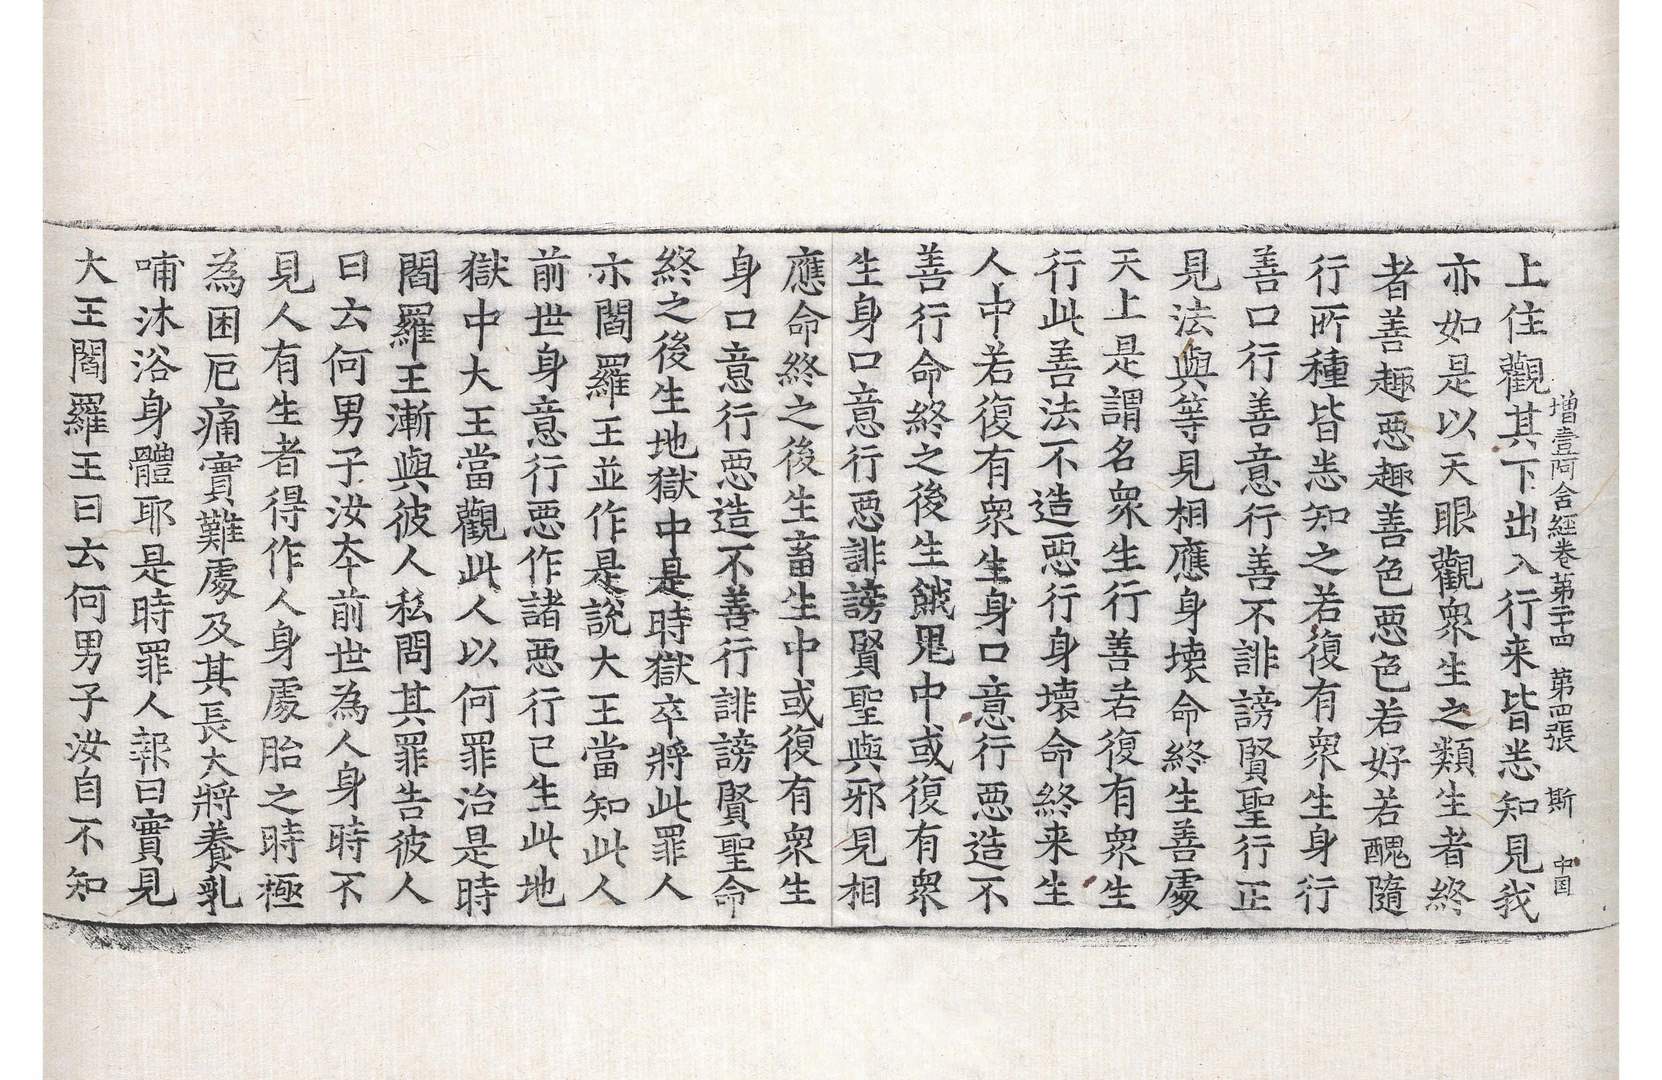 增壹阿含經卷第二十四 第四張 斯 中国
上住觀其下出入行来皆悉知見我
亦如是以天眼觀衆生之類生者終
者善趣惡趣善色惡色若好若醜隨
行所種皆悉知之若復有衆生身行
善口行善意行善不誹謗賢聖行正
見法與等見相應身壊命終生善處
天上是謂名衆生行善若復有衆生
行此善法不造惡行身壊命終来生
人中若復有衆生身口意行惡造不
善行命終之後生餓鬼中或復有衆
生身口意行惡誹謗賢聖與邪見相
應命終之後生畜生中或復有衆生
身口意行惡造不善行誹謗賢聖命
終之後生地獄中是時獄卒將此罪人
亦閻羅王並作是說大王當知此人
前世身意行惡作諸惡行已生此地
獄中大王當觀此人以何罪治是時
閻羅王漸與彼人私問其罪告彼人
曰云何男子汝本前世為人身時不
見人有生者得作人身處胎之時極
為困厄痛實難處及其長大將養乳
哺沐浴身體耶是時罪人報曰實見
大王閻羅王曰云何男子汝自不知